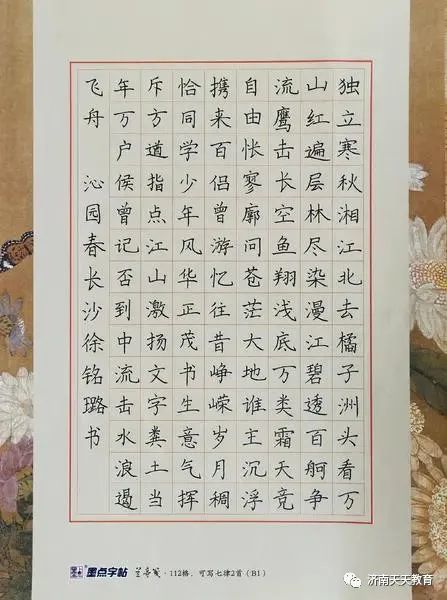 独立寒秋湘江北去橘子洲头看万
山红遍层林尽染漫江碧透百舸争
流鹰击长空鱼翔浅底万类霜天竞
自由怅寥廓问苍茫大地谁主沉浮
携来百侣曾游忆往昔峥嵘岁月稠
恰同学少年风华正茂书生意气挥
斥方道指点江山激扬文字粪土当
年万户侯曾记否到中流击水浪遏
飞舟 沁园春长沙徐铭璐书
墨点字帖 兰亭笺·112格，可写七律2首（B1）
济南天天教育